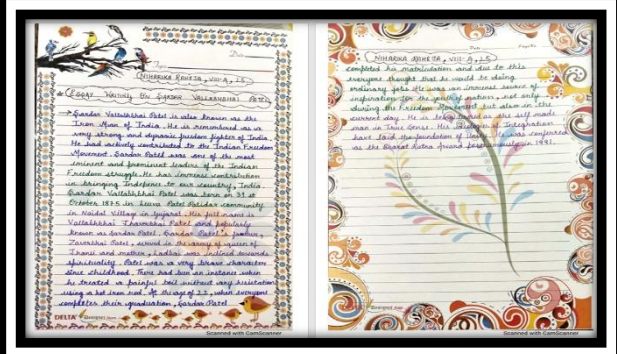 Date
NIHARIKA RAHEJA, VIII-A, 25
ESSAY WRITING ON SARDAR VALLABHBHAI PATEL
→ Sardar Vallabhbhai Patel is also known as the
Iron Man of India. He is remembered as a
very strong and dynamic freedom fighter of India.
He had actively contributed to the Indian Freedom
Movement. Sardar Patel was one of the most
eminent and prominent leaders of the Indian
Freedom struggle. He has immense contribution
in bringing to our country, India.
Sardar Vallabhbhai Patel was born on 31 st
October 1875 in Leuva Patel Patidar community
in Naidal Village in Gujarat. His full name is
Vallabhbhai Jhaverbhai Patel and popularly
known as Sardar Patel. Sardar Patel's father,
Zaverbhai Patel, served in the army of queen of
Jhansi and mother, Ladbai was inclined towards
spirituality. Patel was a very brave character
since childhood. There had been an instance when
he treated a painful boil without any hesitation
using a hot iron rod. At the age of 22, when everyone
completes their graduation, Sardar Patel
DELTA
Scanned with CamScanner
Date
Page No
NIHARIKA RAHEJA, VIII-A, 25
completed his matriculation and due to this
everyone thought that he would be doing
ordinary jobs. He was an immense source of
inspiration for the youth of nation, not only
during the Freedom Movement but also in the
current day. He is termed as the self made
man in True Sense. His ideologies of Integration
have laid the foundation of Unity. He was conferred
as the Bharat Ratna Award posthumously in 1991.
Scanned with CamScanner